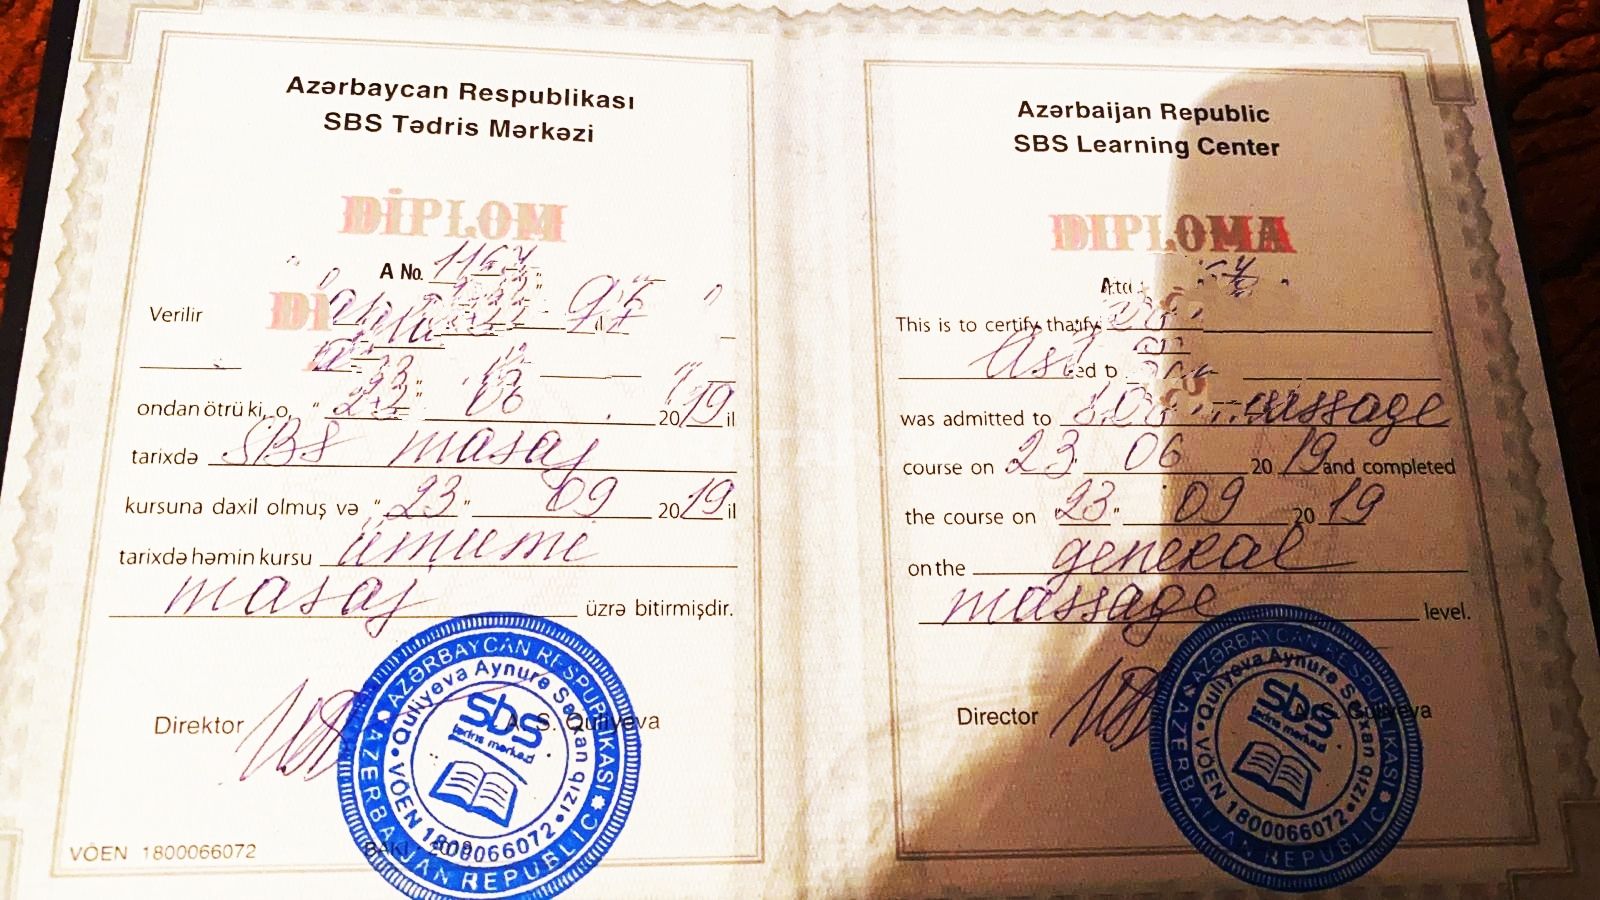 Azərbaycan Respublikası
SBS Tədris Mərkəzi
DİPLOM
A No.
Verilir
ondan ötrü ki, o, " 23 " 06 2019 il
tarixdə SBS masaj
kursuna daxil olmuş və " 23 " 09 2019 il
tarixdə həmin kursu ümumi
masaj üzrə bitirmişdir.
Direktor A. S. Quliyeva
AZƏRBAYCAN RESPUBLİKASI
AZERBAIJAN REPUBLIC
Quliyeva Aynurə Sərxan qızı
VÖEN 1800066072
sbs
tədris mərkəzi
VÖEN 1800066072
Azərbaijan Republic
SBS Learning Center
DIPLOMA
This is to certify that
was admitted to massage
course on 23 06 2019 and completed
the course on 23 " 09 2019
on the general
massage level.
Director S. Quliyeva
AZƏRBAYCAN RESPUBLİKASI
AZERBAIJAN REPUBLIC
Quliyeva Aynurə Sərxan qızı
VÖEN 1800066072
sbs
tədris mərkəzi